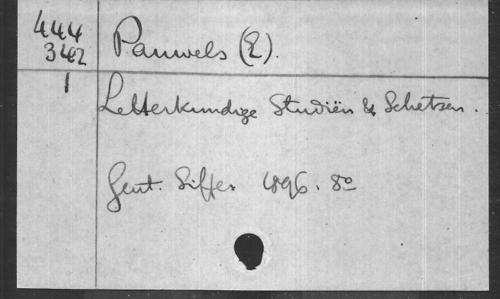 444
342
1
Pauwels (E).
Letterkundige Studiën & Schetsen.
Gent. Siffer 1896. 8º